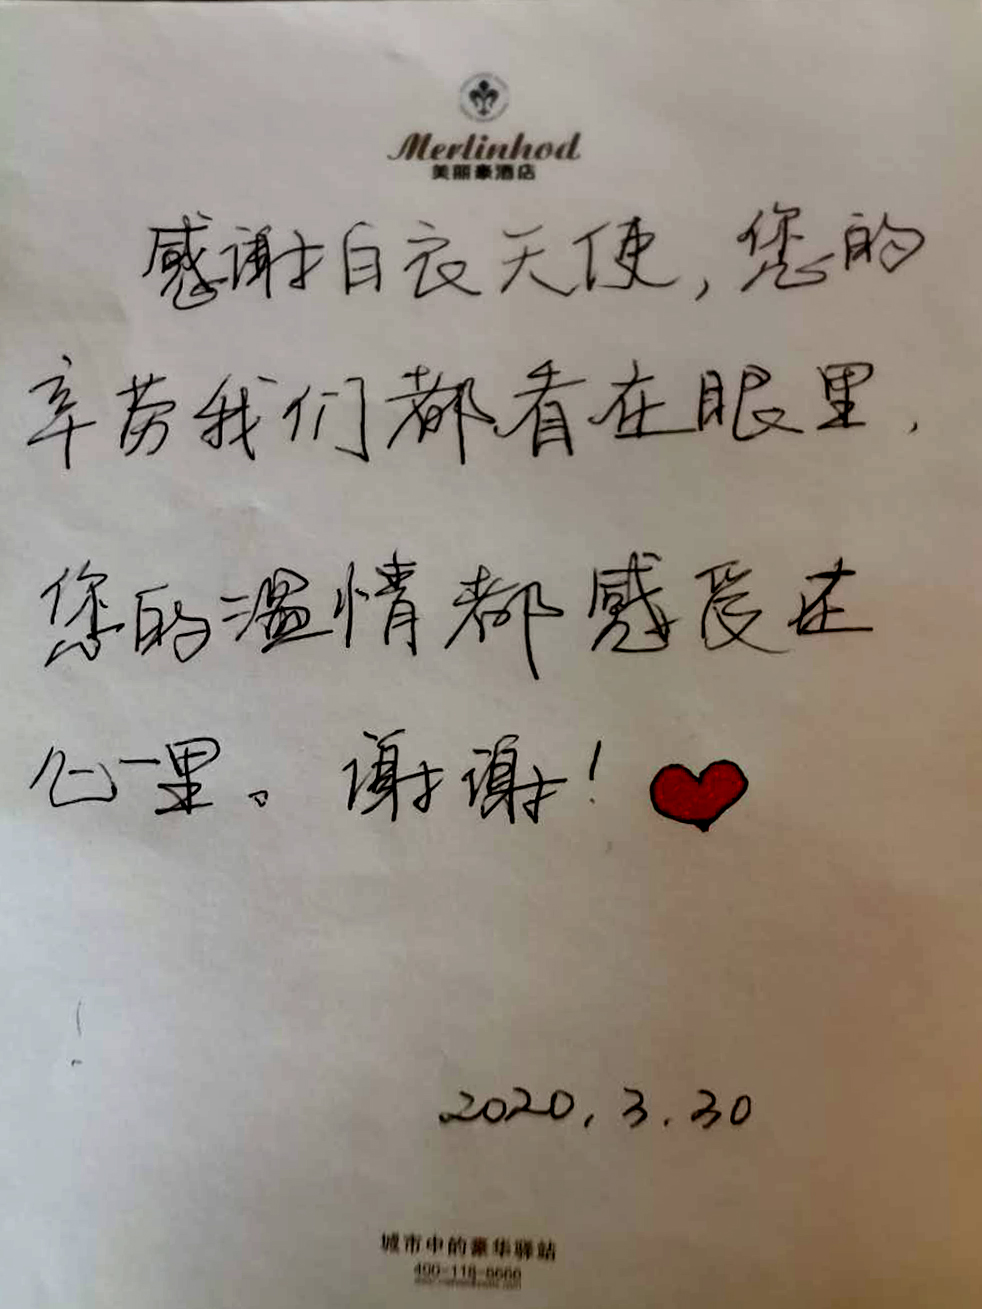 Merlinhod
美丽豪酒店
感谢白衣天使,您的
辛劳我们都看在眼里,
您的温情都感受在
心里。谢谢!
2020.3.30
城市中的豪华驿站
400-118-6666